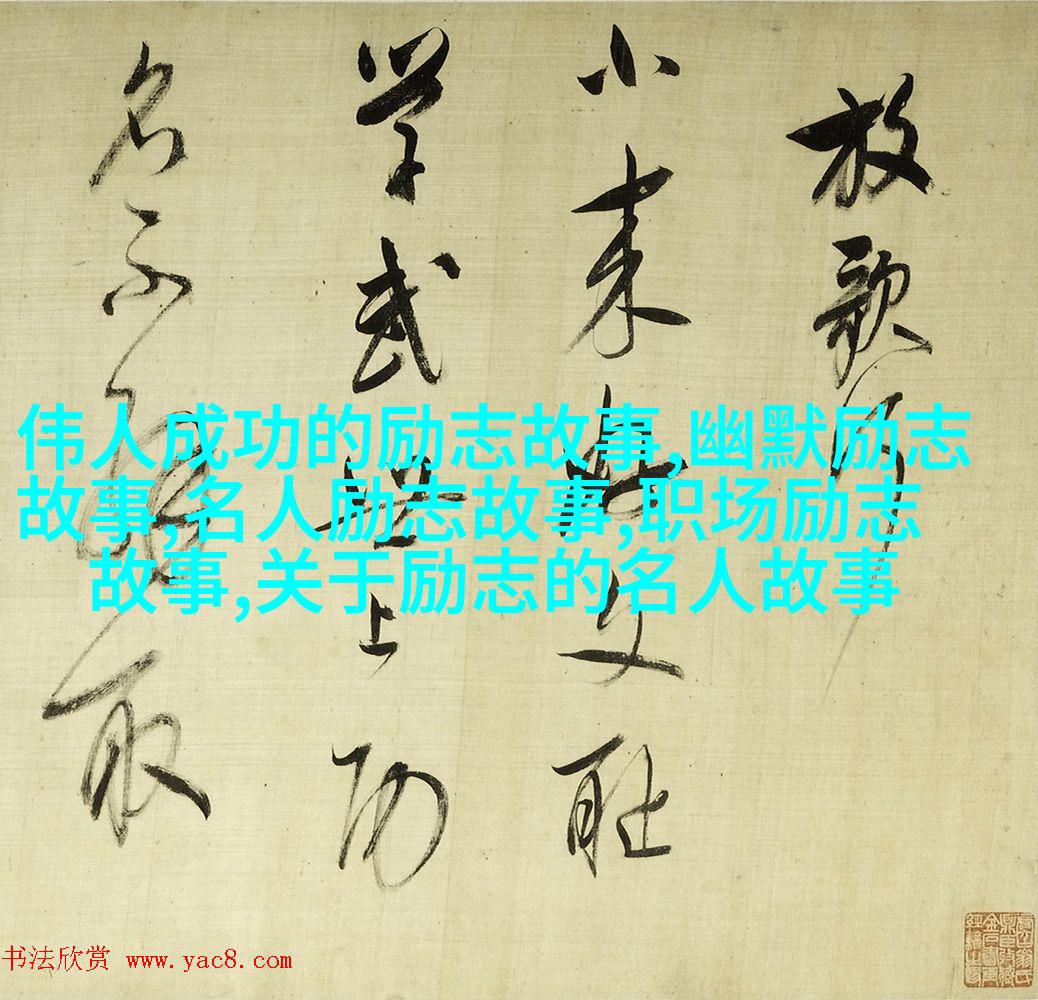 放歌行
小来好文耻
学武世上功
名不解取
伟人成功的励志故事,幽默励志
故事,名人励志故事,职场励志
故事,关于励志的名人故事
书法欣赏 www.yac8.com